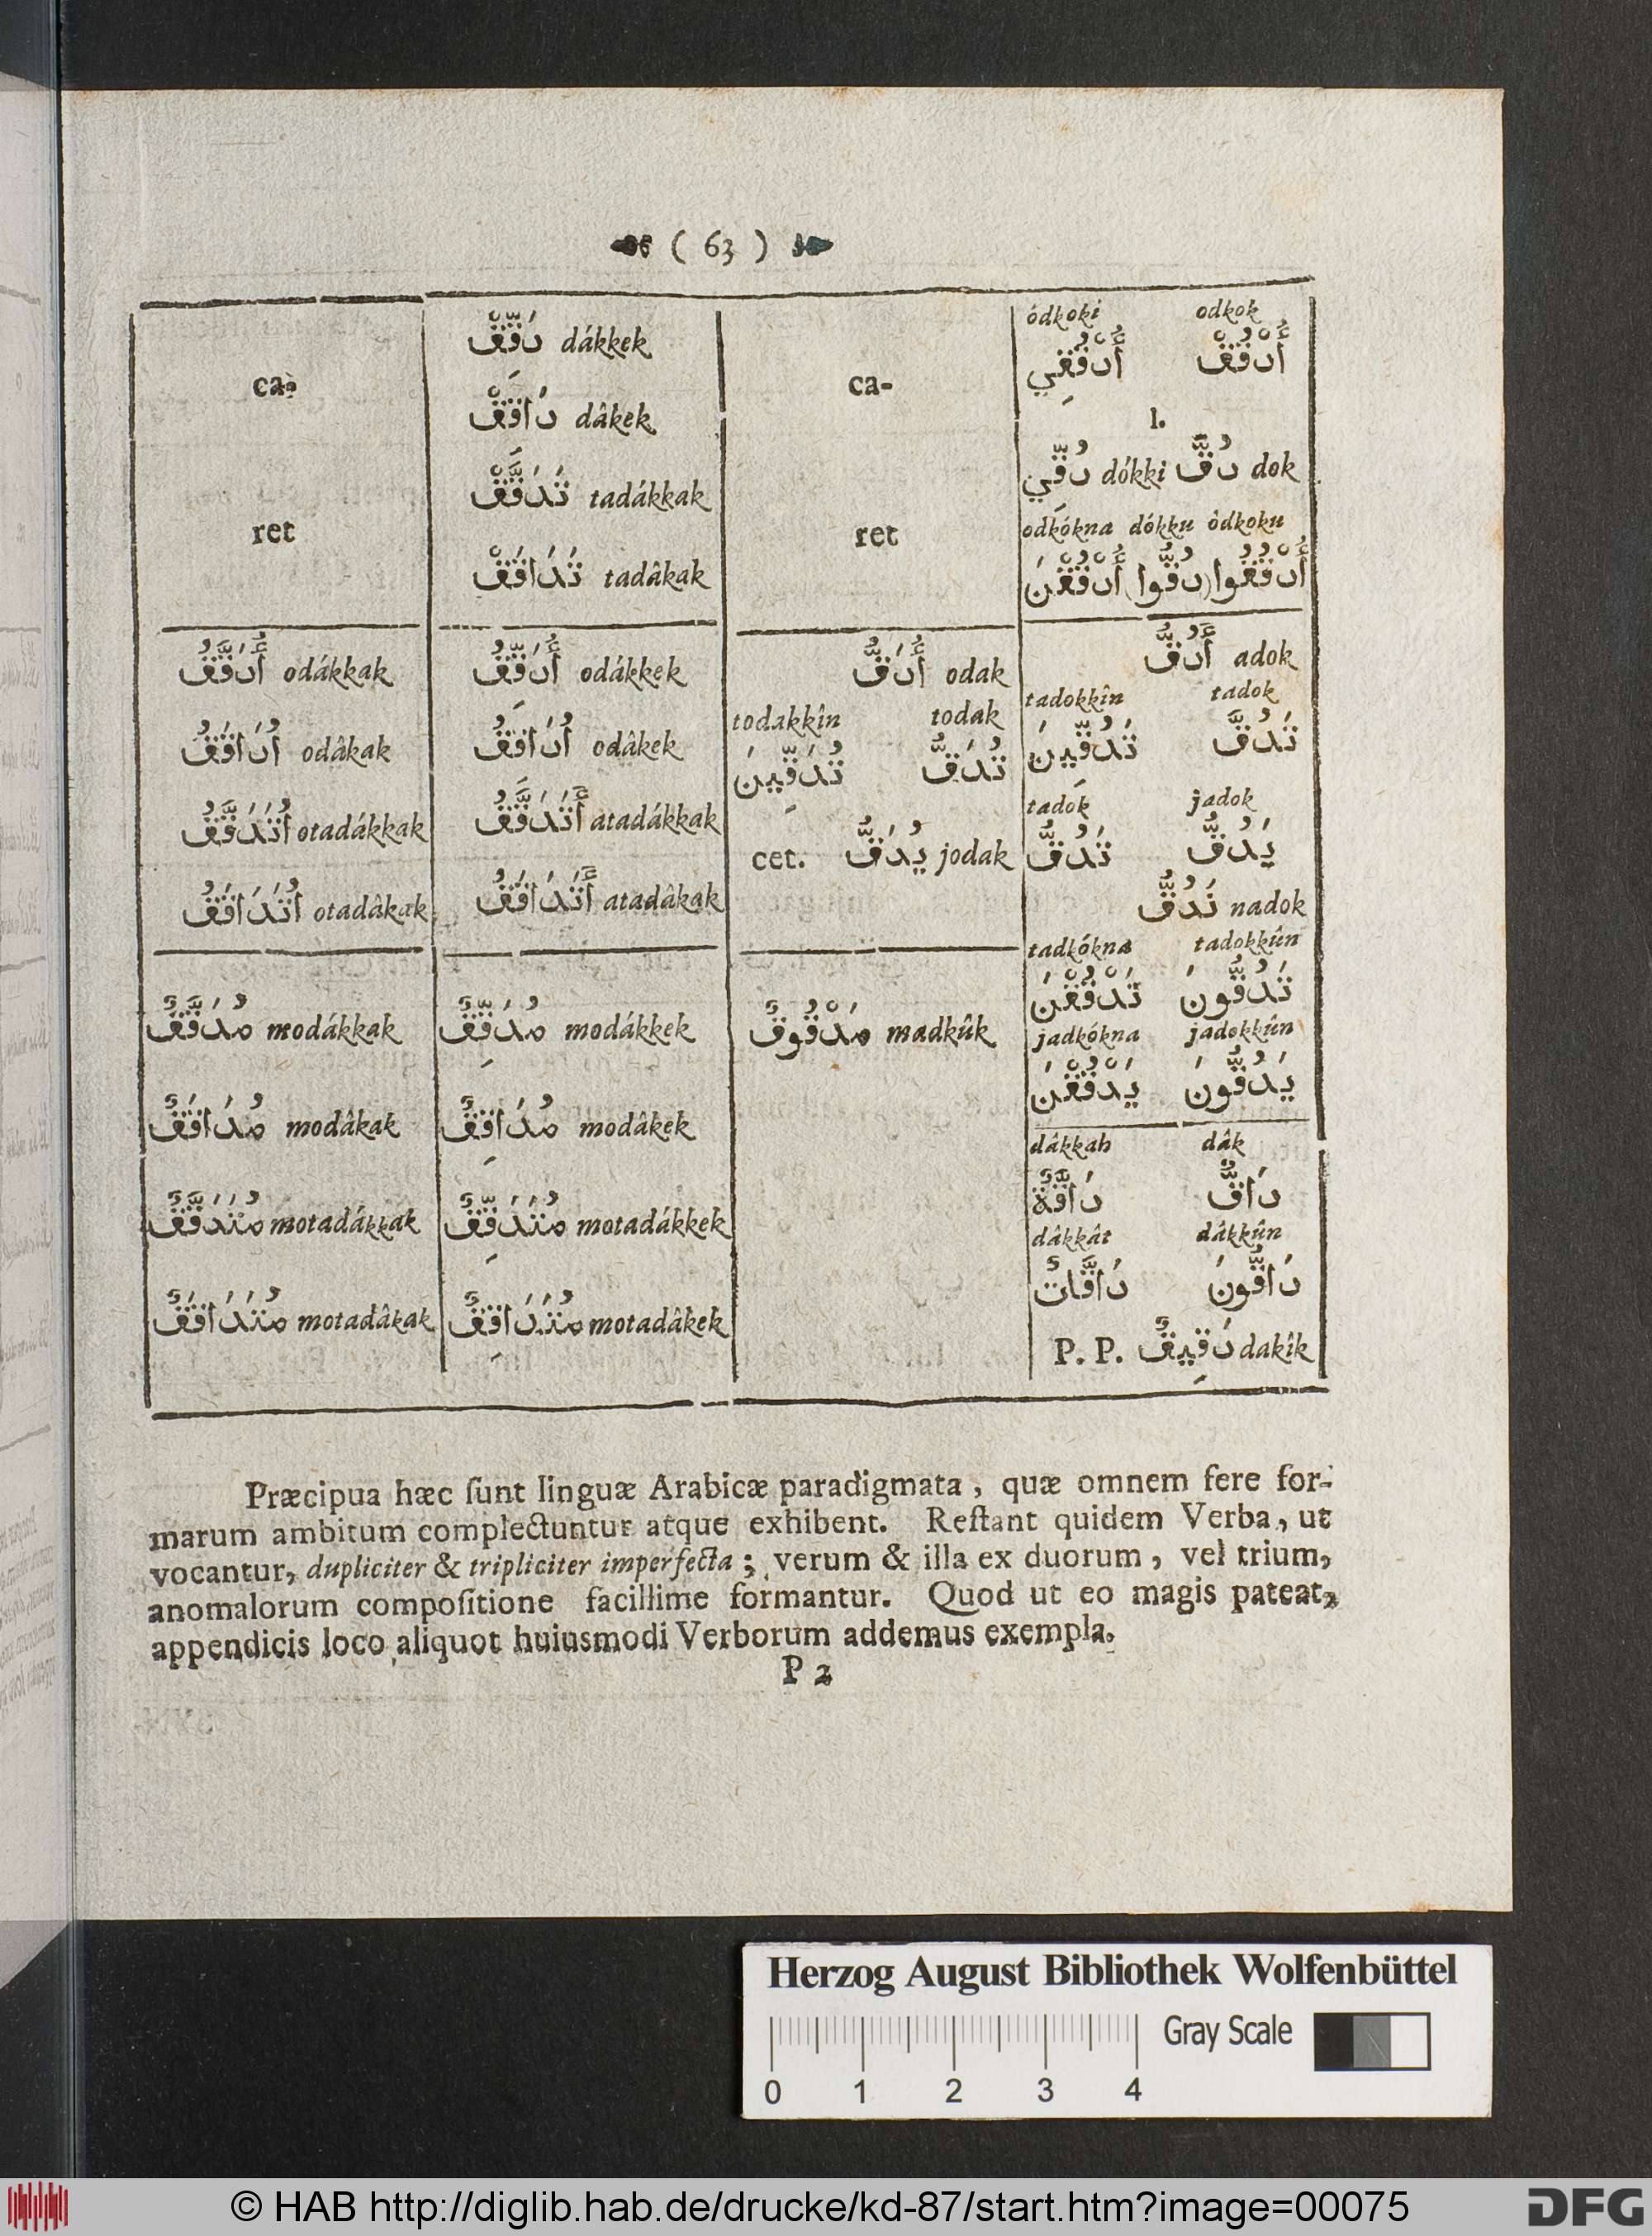 ( 63 )
ca-
دَقِّقْ dákkek
دَاقِقْ dâkek
تَدَقَّقْ tadákkak
تَدَاقَقْ tadâkak
ret
ca-
ret
ódkoki odkok
أُدْقُقِي أُدْقُقْ
l.
دُقِّي dókki دُقَّ dok
odkókna dókku òdkoku
أُدْقُقُوا (دُقُّوا) أُدْقُقْنَ
أُدَقَّقُ odákkak
أُدَاقَقُ odâkak
أُتَدَقَّقُ otadákkak
أُتَدَاقَقُ otadâkak
أُدَقِّقُ odákkek
أُدَاقِقُ odâkek
أَتَدَقَّقُ atadákkak
أَتَدَاقَقُ atadâkak
أُدَقُّ odak
todakkîn todak
تُدَقِّينَ تُدَقُّ
cet. يُدَقُّ jodak
أَدُقُّ adok
tadokkîn tadok
تَدُقِّينَ تَدُقُّ
tadok jadok
تَدُقُّ يَدُقُّ
نَدُقُّ nadok
tadkókna tadokkûn
تَدْقُقْنَ تَدُقُّونَ
jadkókna jadokkûn
يَدْقُقْنَ يَدُقُّونَ
مُدَقَّقٌ modákkak
مُدَاقَقٌ modâkak
مُتَدَقَّقٌ motadákkak
مُتَدَاقَقٌ motadâkak
مُدَقِّقٌ modákkek
مُدَاقِقٌ modâkek
مُتَدَقِّقٌ motadákkek
مُتَدَاقِقٌ motadâkek
مَدْقُوقٌ madkûk
dâkkah dâk
دَاقَّةٌ دَاقٌّ
dâkkât dâkkûn
دَاقَّاتٌ دَاقُّونَ
P. P. دَقِيقٌ dakîk
Præcipua hæc ſunt linguæ Arabicæ paradigmata, quæ omnem fere for-
marum ambitum complectuntur atque exhibent. Reſtant quidem Verba, ut
vocantur, dupliciter & tripliciter imperfecta; verum & illa ex duorum, vel trium,
anomalorum compoſitione facillime formantur. Quod ut eo magis pateat,
appendicis loco aliquot huiusmodi Verborum addemus exempla.
P 2
Herzog August Bibliothek Wolfenbüttel
Gray Scale
0 1 2 3 4
© HAB http://diglib.hab.de/drucke/kd-87/start.htm?image=00075
DFG